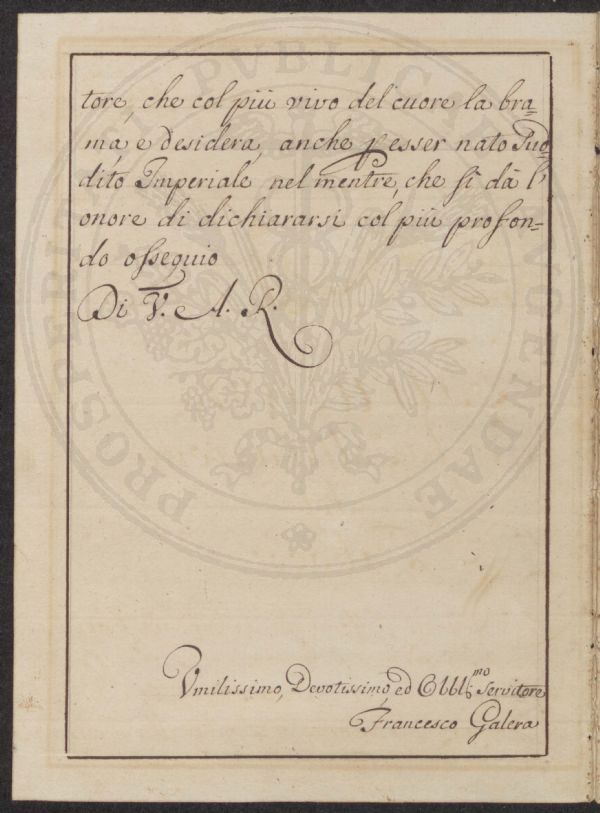 tore, che col più vivo del cuore la bra-
ma, e desidera, anche p esser nato Sud-
dito Imperiale, nel mentre, che si dà l'
onore di dichiararsi col più profon=
do ossequio
Di V. A. R.
Vmilissimo, Devotissimo, ed Obblig.mo Servitore
Francesco Galera
PROSPERITATI PVBLICAE AVGENDAE